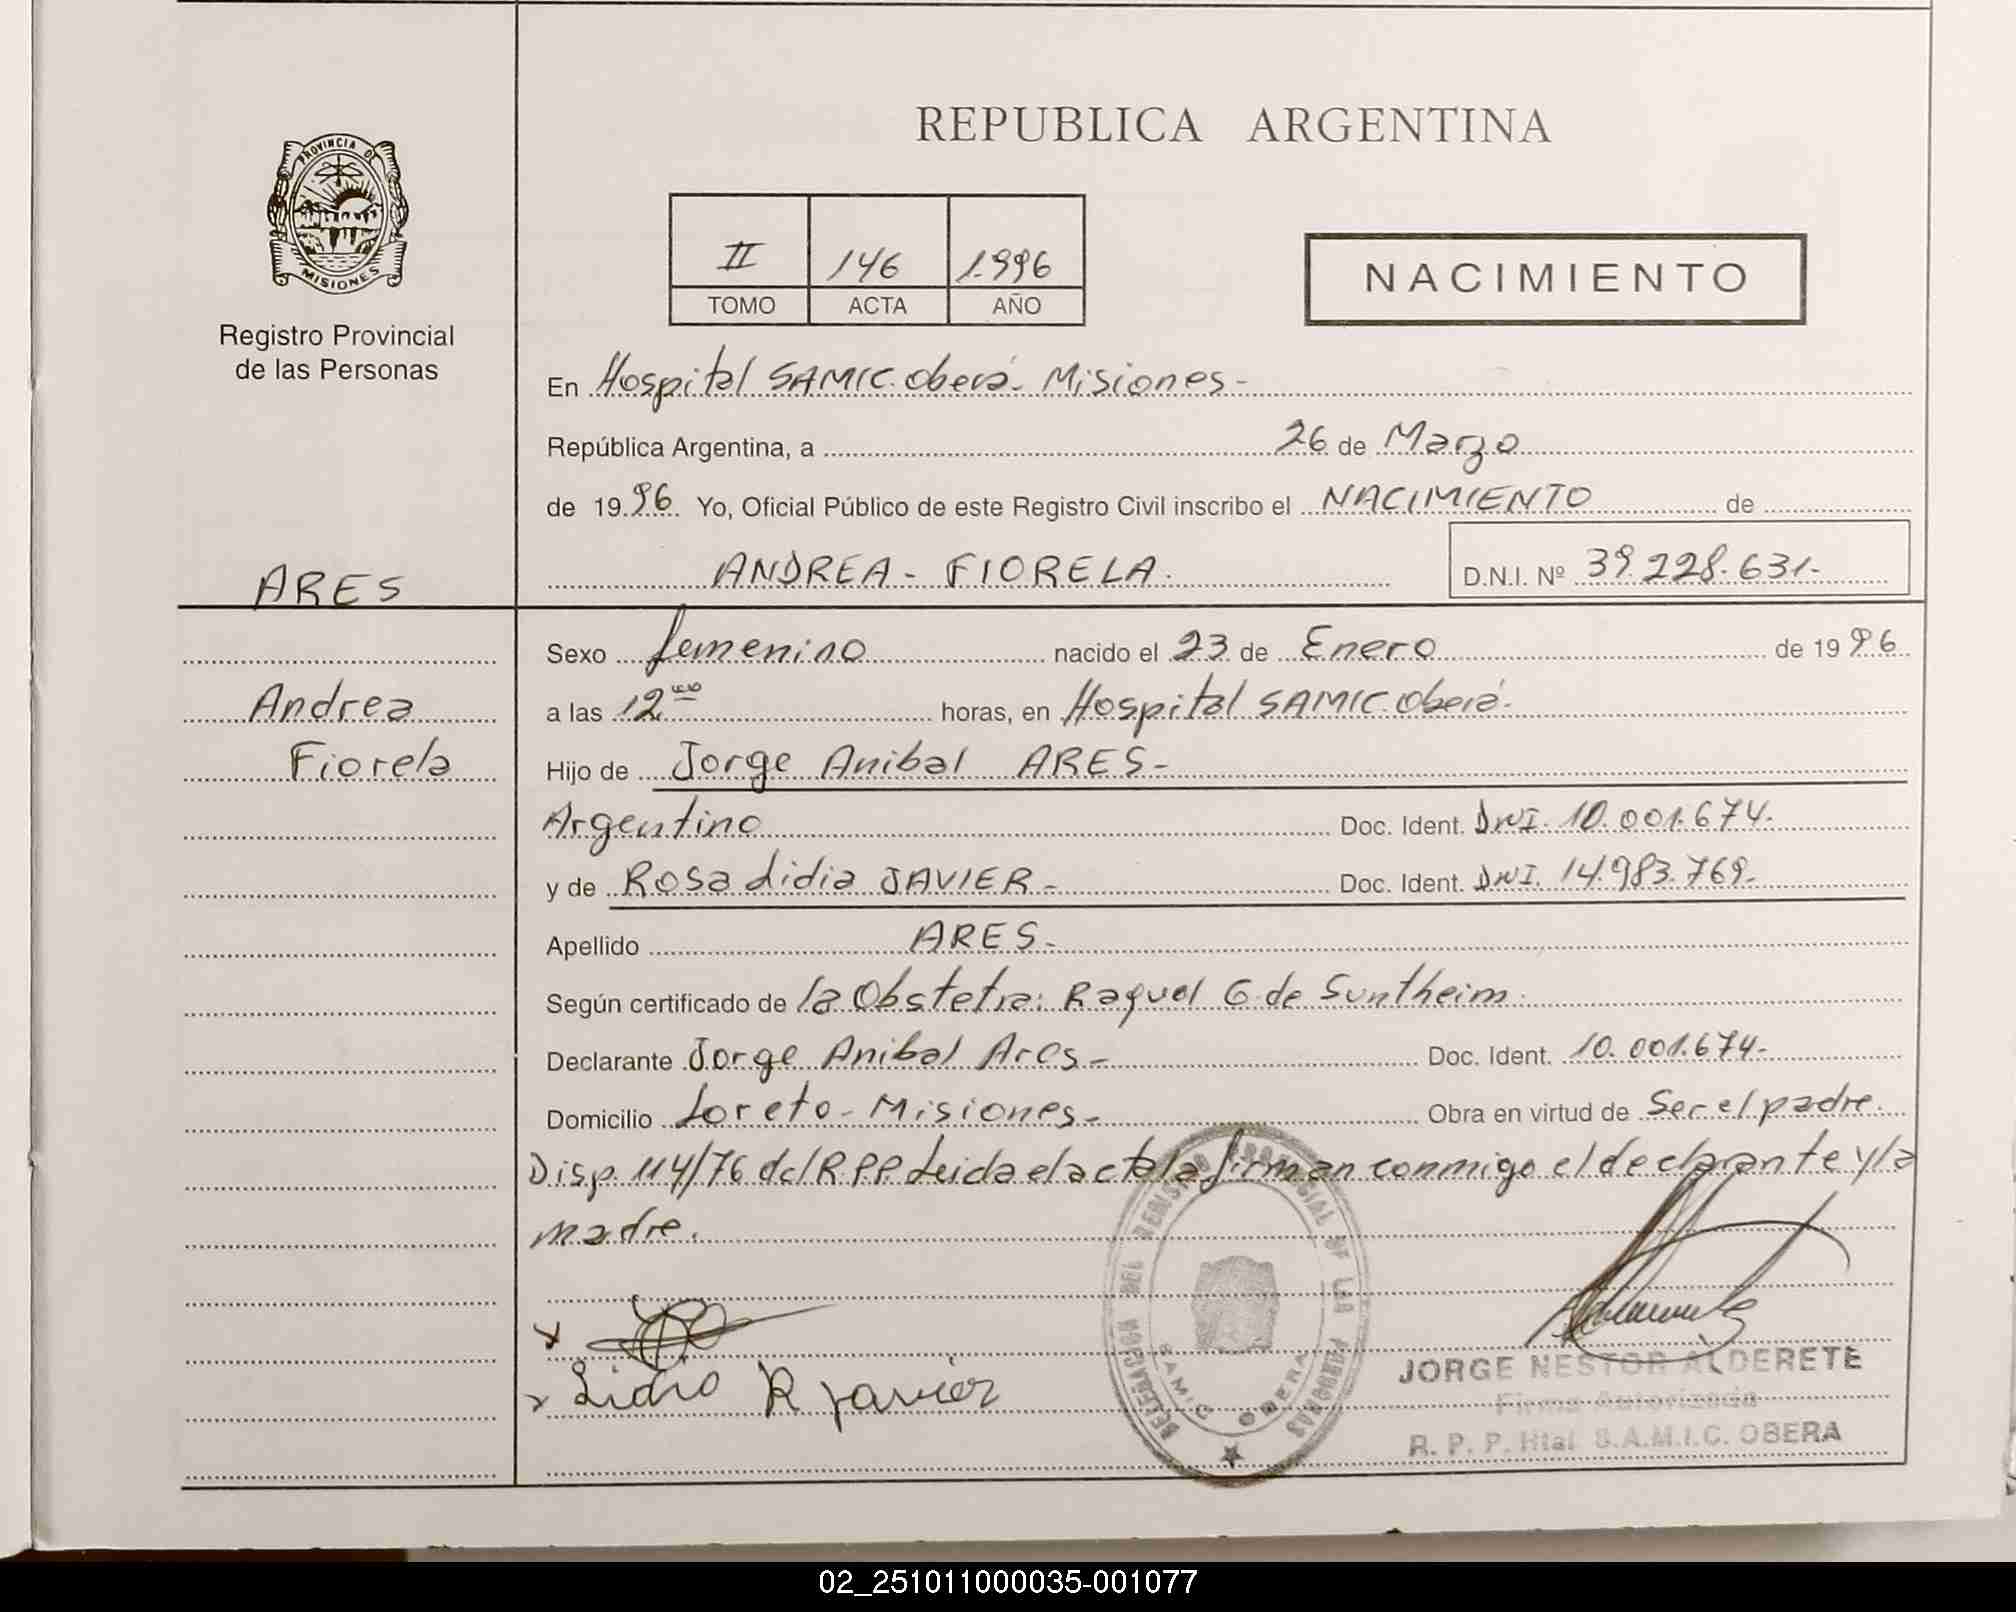 REPUBLICA ARGENTINA
PROVINCIA DE MISIONES
Registro Provincial
de las Personas
II 146 1.996
TOMO ACTA AÑO
NACIMIENTO
En Hospital SAMIC. Oberá - Misiones -
República Argentina, a 26 de Marzo
de 1996. Yo, Oficial Público de este Registro Civil inscribo el NACIMIENTO de
ANDREA - FIORELA. D.N.I. Nº 39.228.631.-
ARES
Andrea
Fiorela
Sexo femenino nacido el 23 de Enero de 1996
a las 12 horas, en Hospital SAMIC. Oberá.
Hijo de Jorge Anibal ARES -
Argentino Doc. Ident. DNI. 10.001.674.
y de Rosa Lidia JAVIER - Doc. Ident. DNI. 14.983.769.-
Apellido ARES -
Según certificado de la Obstetra: Raquel G. de Suntheim.
Declarante Jorge Anibal Ares - Doc. Ident. 10.001.674.-
Domicilio Loreto - Misiones - Obra en virtud de Ser el padre.
Disp. 114/76 del R.P.P. Leida el acta la firman conmigo el declarante y la
madre.
x
x Lidia R Javier
DELEGACION DEL REGISTRO PROVINCIAL DE LAS PERSONAS
SAMIC OBERA
JORGE NESTOR ALDERETE
Firma Autorizada
R. P. P. Htal S.A.M.I.C. OBERA
02_251011000035-001077